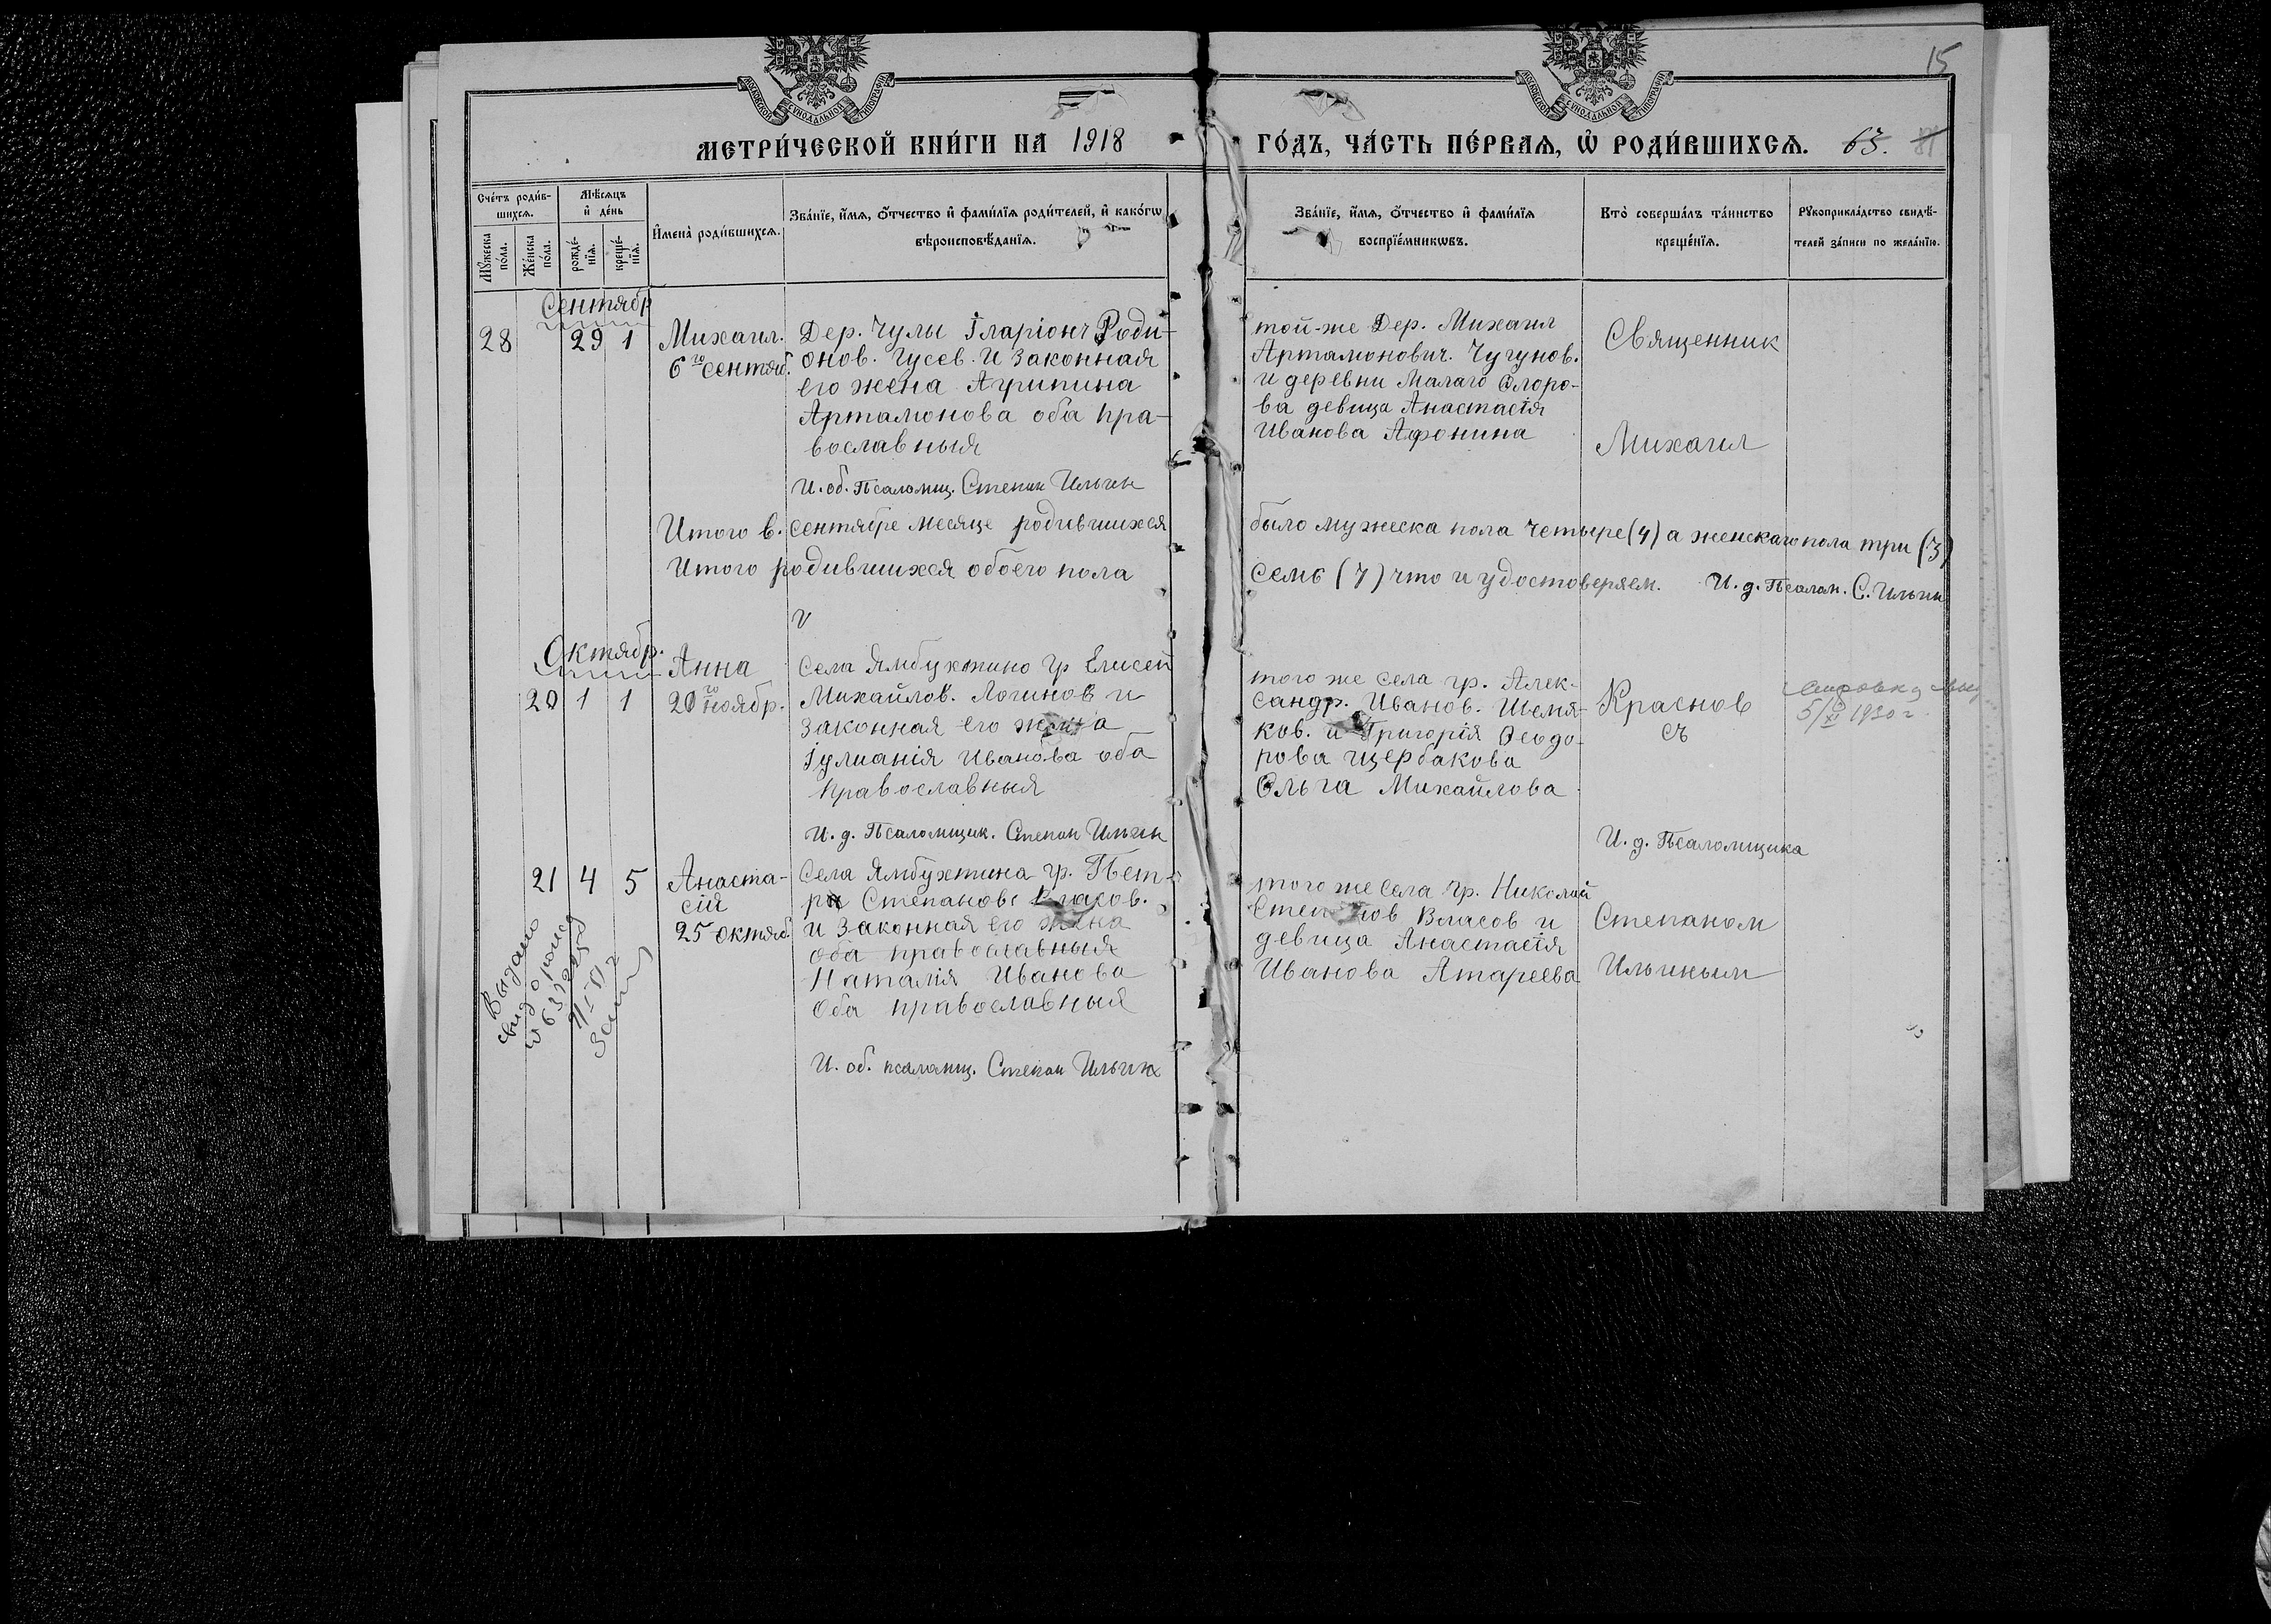 15
МОСКОВСКОЙ СѴНОДАЛЬНОЙ ТИПОГРАФІИ
МОСКОВСКОЙ СѴНОДАЛЬНОЙ ТИПОГРАФІИ
МЕТРИ́ЧЕСКОЙ КНИ́ГИ НА 1918 ГО́ДЪ, ЧА́СТЬ ПЕ́РВАЯ, Ѡ РОДИ́ВШИХСЯ. 63.
Сче́тъ роди́в-
шихся.
Мѣ́сяцъ
и҆ де́нь
Мꙋ́жеска
по́ла.
Же́нска
по́ла.
рожде́-
нїя.
креще́-
нїя.
И҆мена̀ роди́вшихся.
Зва́нїе, и҆́мя, ѻ҆́тчество и҆ фами́лїя роди́телей, и҆ како́гѡ
вѣроисповѣ́данїя.
Зва́нїе, и҆́мя, ѻ҆́тчество и҆ фами́лїя
воспрїе́мникѡвъ.
Кто̀ соверша́лъ та́инство
креще́нїя.
Рꙋкоприкла́дство свидѣ́-
телей за́писи по жела́нїю.
Сентябр
28 29 1
Михаил.
6го сентяб.
Дер. Чулы Іларіонъ Роди-
онов. Гусев. И Законная
его жена Агрипина
Артамонова оба пра-
вославныя
И. об. Псаломщ. Степан Ильин
той-же Дер. Михаил
Артамонович. Чугунов.
и деревни Малаго Флоро-
ва девица Анастасія
Иванова Афонина
Священник
Михаил
Итого в. сентябре месяце родившихся было мужеска пола четыре (4) а женскаго пола три (3)
Итого родившихся обоего пола семь (7) что и удостоверяем. И. д. Псалом. С. Ильин
v
Октябр.
20 1 1
Анна
20го ноябр.
Села Ямбухтино гр Елисей
Михайлов. Логинов и
Законная его жена
Іулианія Иванова оба
Православныя
И. д. Псаломщик. Степан Ильин
того же села гр. Алек-
сандр. Иванов. Шемя-
ков. и Григорія Ѳеодо-
рова Щербакова
Ольга Михайлова
Краснов
съ
И. д. Псаломщика
5/XI 1930 г.
21 4 5
Анаста-
сія
25 октяб
Села Ямбухтина гр. Пет-
р Степановъ Власов.
и Законная его жена
оба православныя
Наталія Иванова
Оба православныя
И. об. псаломщ. Степан Ильин
того же села гр. Николай
Степанов Власов и
девица Анастасія
Иванова Атареева
Степаном
Ильиным
Выдано